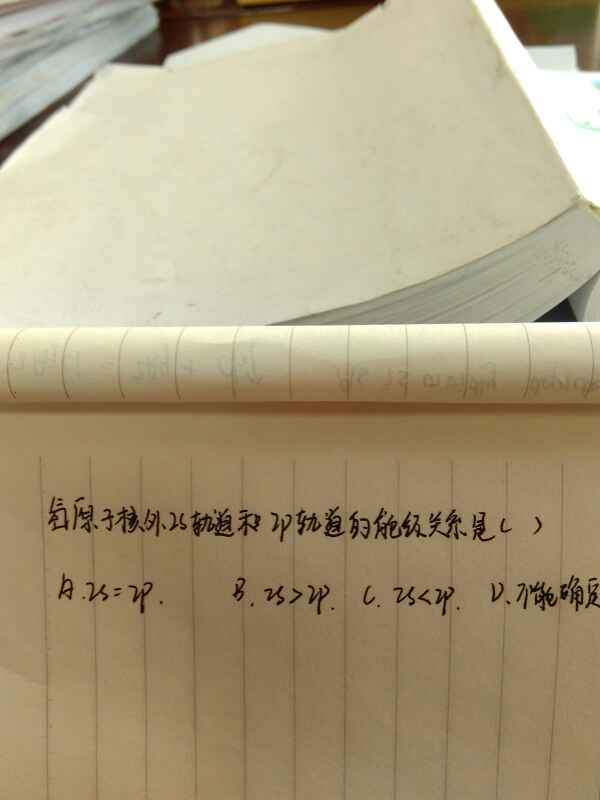 氢原子核外2s轨道和2p轨道的能级关系是( )
A.2s=2p. B.2s>2p. C.2s<2p. D.不能确定